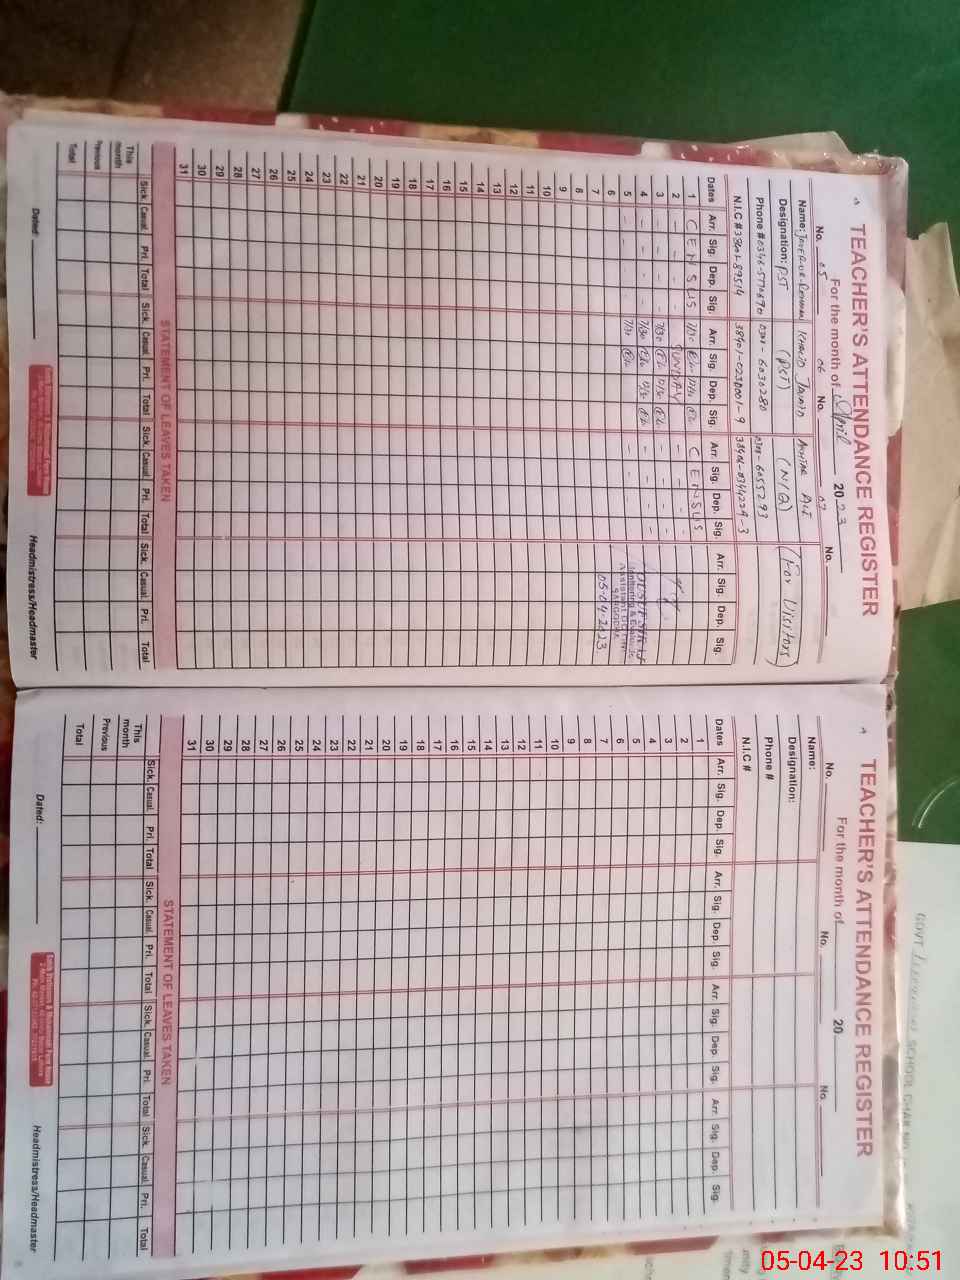 TEACHER'S ATTENDANCE REGISTER
For the month of April 2023
No. 05 06 No. 07 No.
Name: KHALID JAVAID AKHTAR ALI (For Visitors)
Designation: PST (PST) (N/Q)
Phone #
N.I.C #
Dates Arr. Sig. Dep. Sig. Arr. Sig. Dep. Sig. Arr. Sig. Dep. Sig. Arr. Sig. Dep. Sig.
1 CENSUS 7/30 CENSUS
2 - - - - SUNDAY - - - -
3 - - - - 7/30 - - - -
4 - - - - 7/30 - - - -
5 - - - - 7/30 -
6
7
8
9
10
11
12
13
14
15
16
17
18
19
20
21
22
23
24
25
26
27
28
29
30
31
Monitoring & Evaluation
Assistant
SARGODHA
05-04-2023
STATEMENT OF LEAVES TAKEN
Sick. Casual. Pri. Total Sick. Casual. Pri. Total Sick. Casual. Pri. Total Sick. Casual. Pri. Total
This month
Previous
Total
Dated: Headmistress/Headmaster
TEACHER'S ATTENDANCE REGISTER
For the month of 20
No. No. No.
Name:
Designation:
Phone #
N.I.C #
Dates Arr. Sig. Dep. Sig. Arr. Sig. Dep. Sig. Arr. Sig. Dep. Sig. Arr. Sig. Dep. Sig.
1
2
3
4
5
6
7
8
9
10
11
12
13
14
15
16
17
18
19
20
21
22
23
24
25
26
27
28
29
30
31
STATEMENT OF LEAVES TAKEN
Sick. Casual. Pri. Total Sick. Casual. Pri. Total Sick. Casual. Pri. Total Sick. Casual. Pri. Total
This month
Previous
Total
Dated: Headmistress/Headmaster
GOVT SCHOOL CHAK NO
05-04-23 10:51